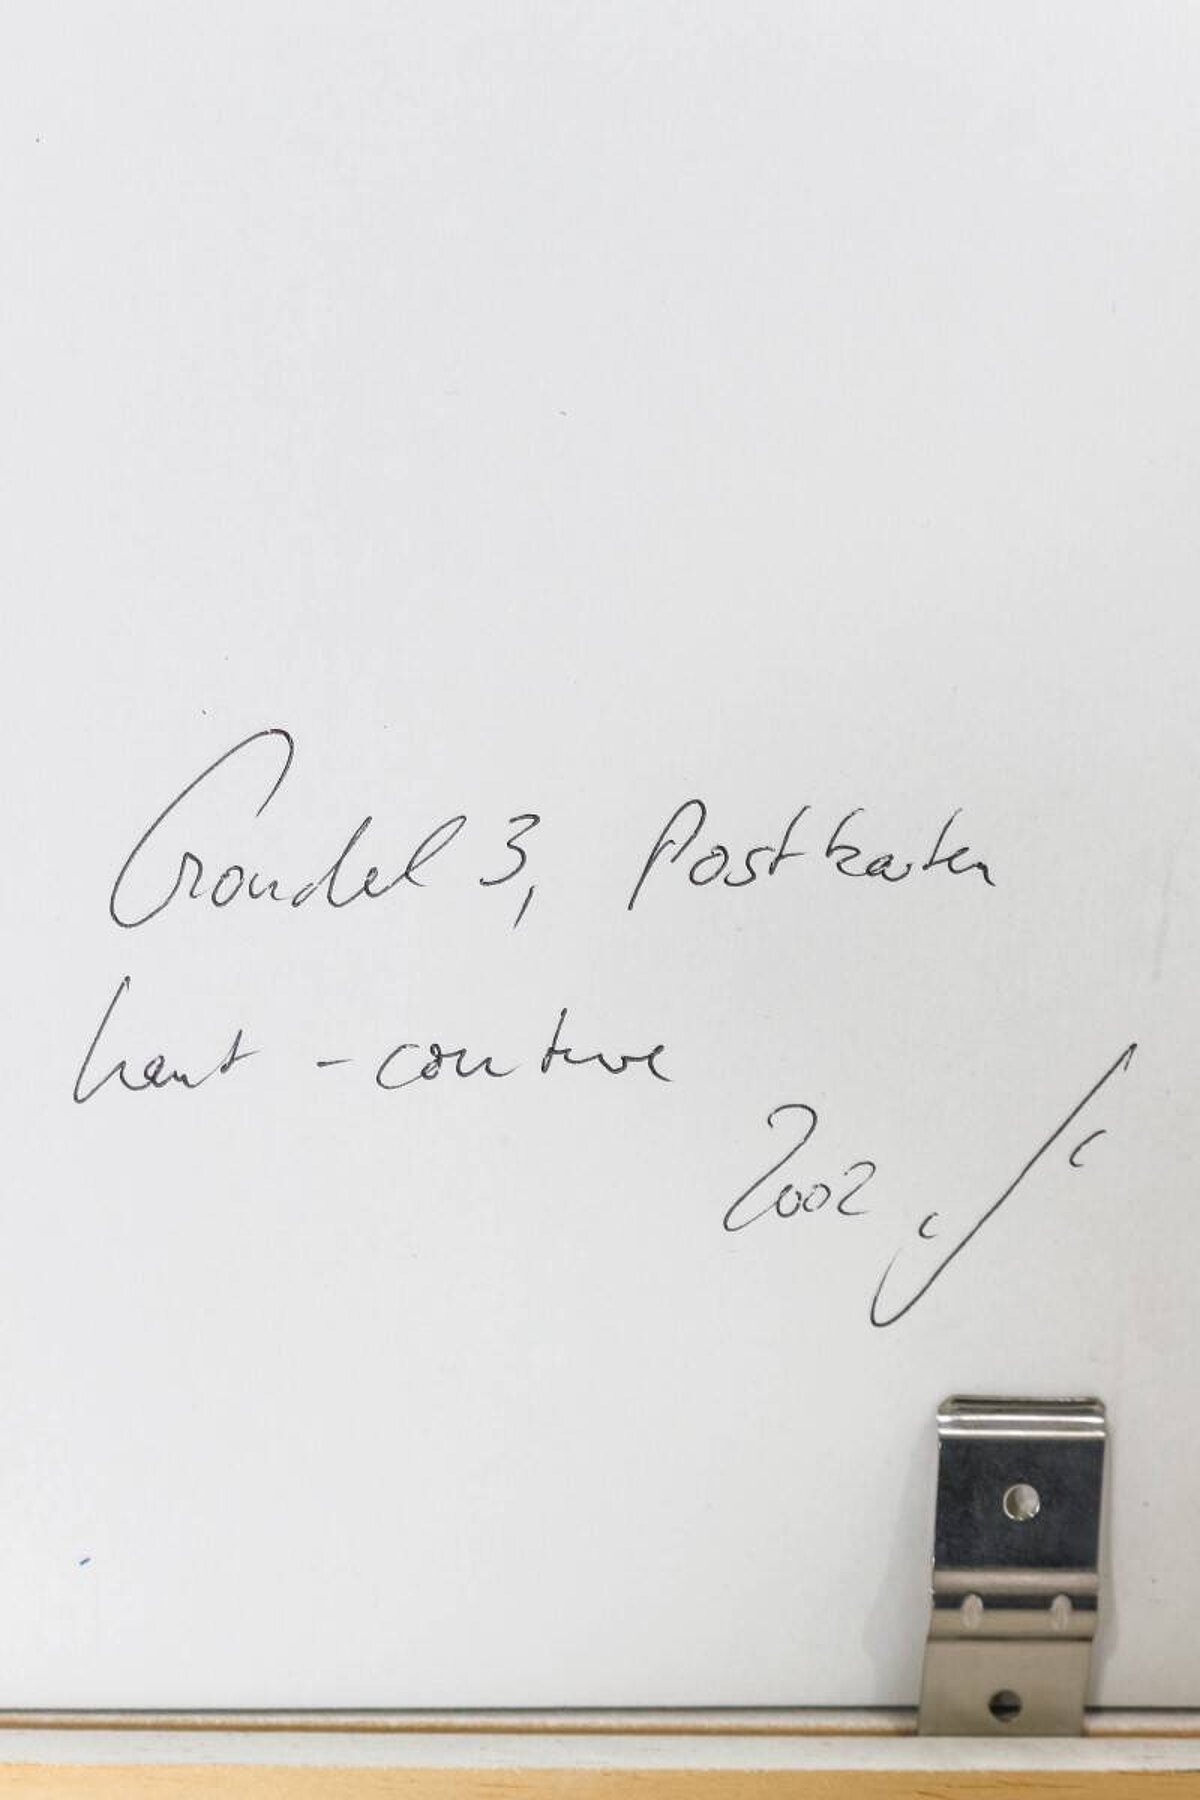 Gondel 3, Postkarten
haut-couture
2002